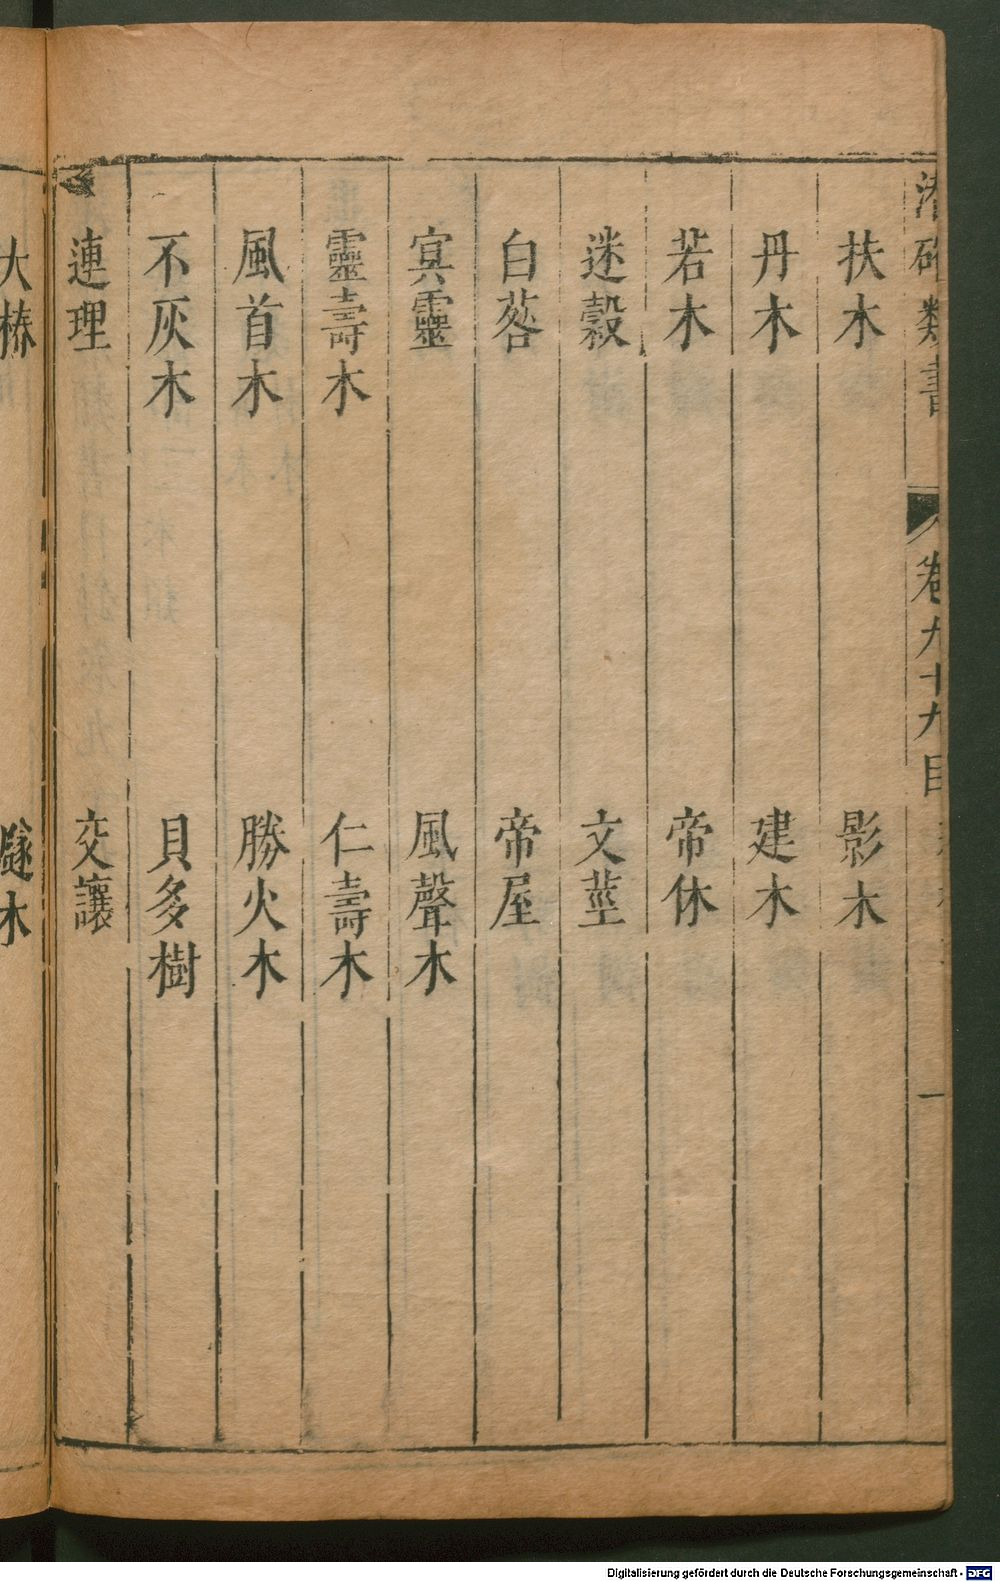 潛確類書
卷九十九目
一
扶木　影木
丹木　建木
若木　帝休
迷穀　文莖
白蓉　帝屋
㝠靈　風聲木
靈壽木　仁壽木
風首木　勝火木
不灰木　貝多樹
連理　交讓
大椿　燧木
Digitalisierung gefördert durch die Deutsche Forschungsgemeinschaft - DFG